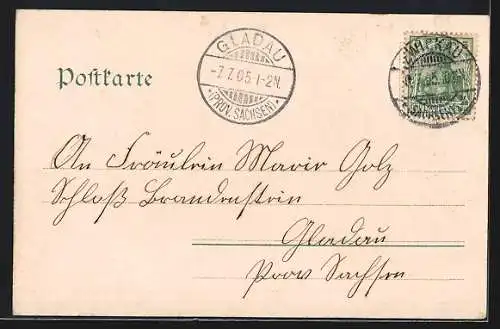 Postkarte
GLADAU
-7.7.05.1-2N.
*(PROV. SACHSEN)*
5
An Fräulein Marie Golz
Schloß Brandenstein
Gladau
Prov Sachsen